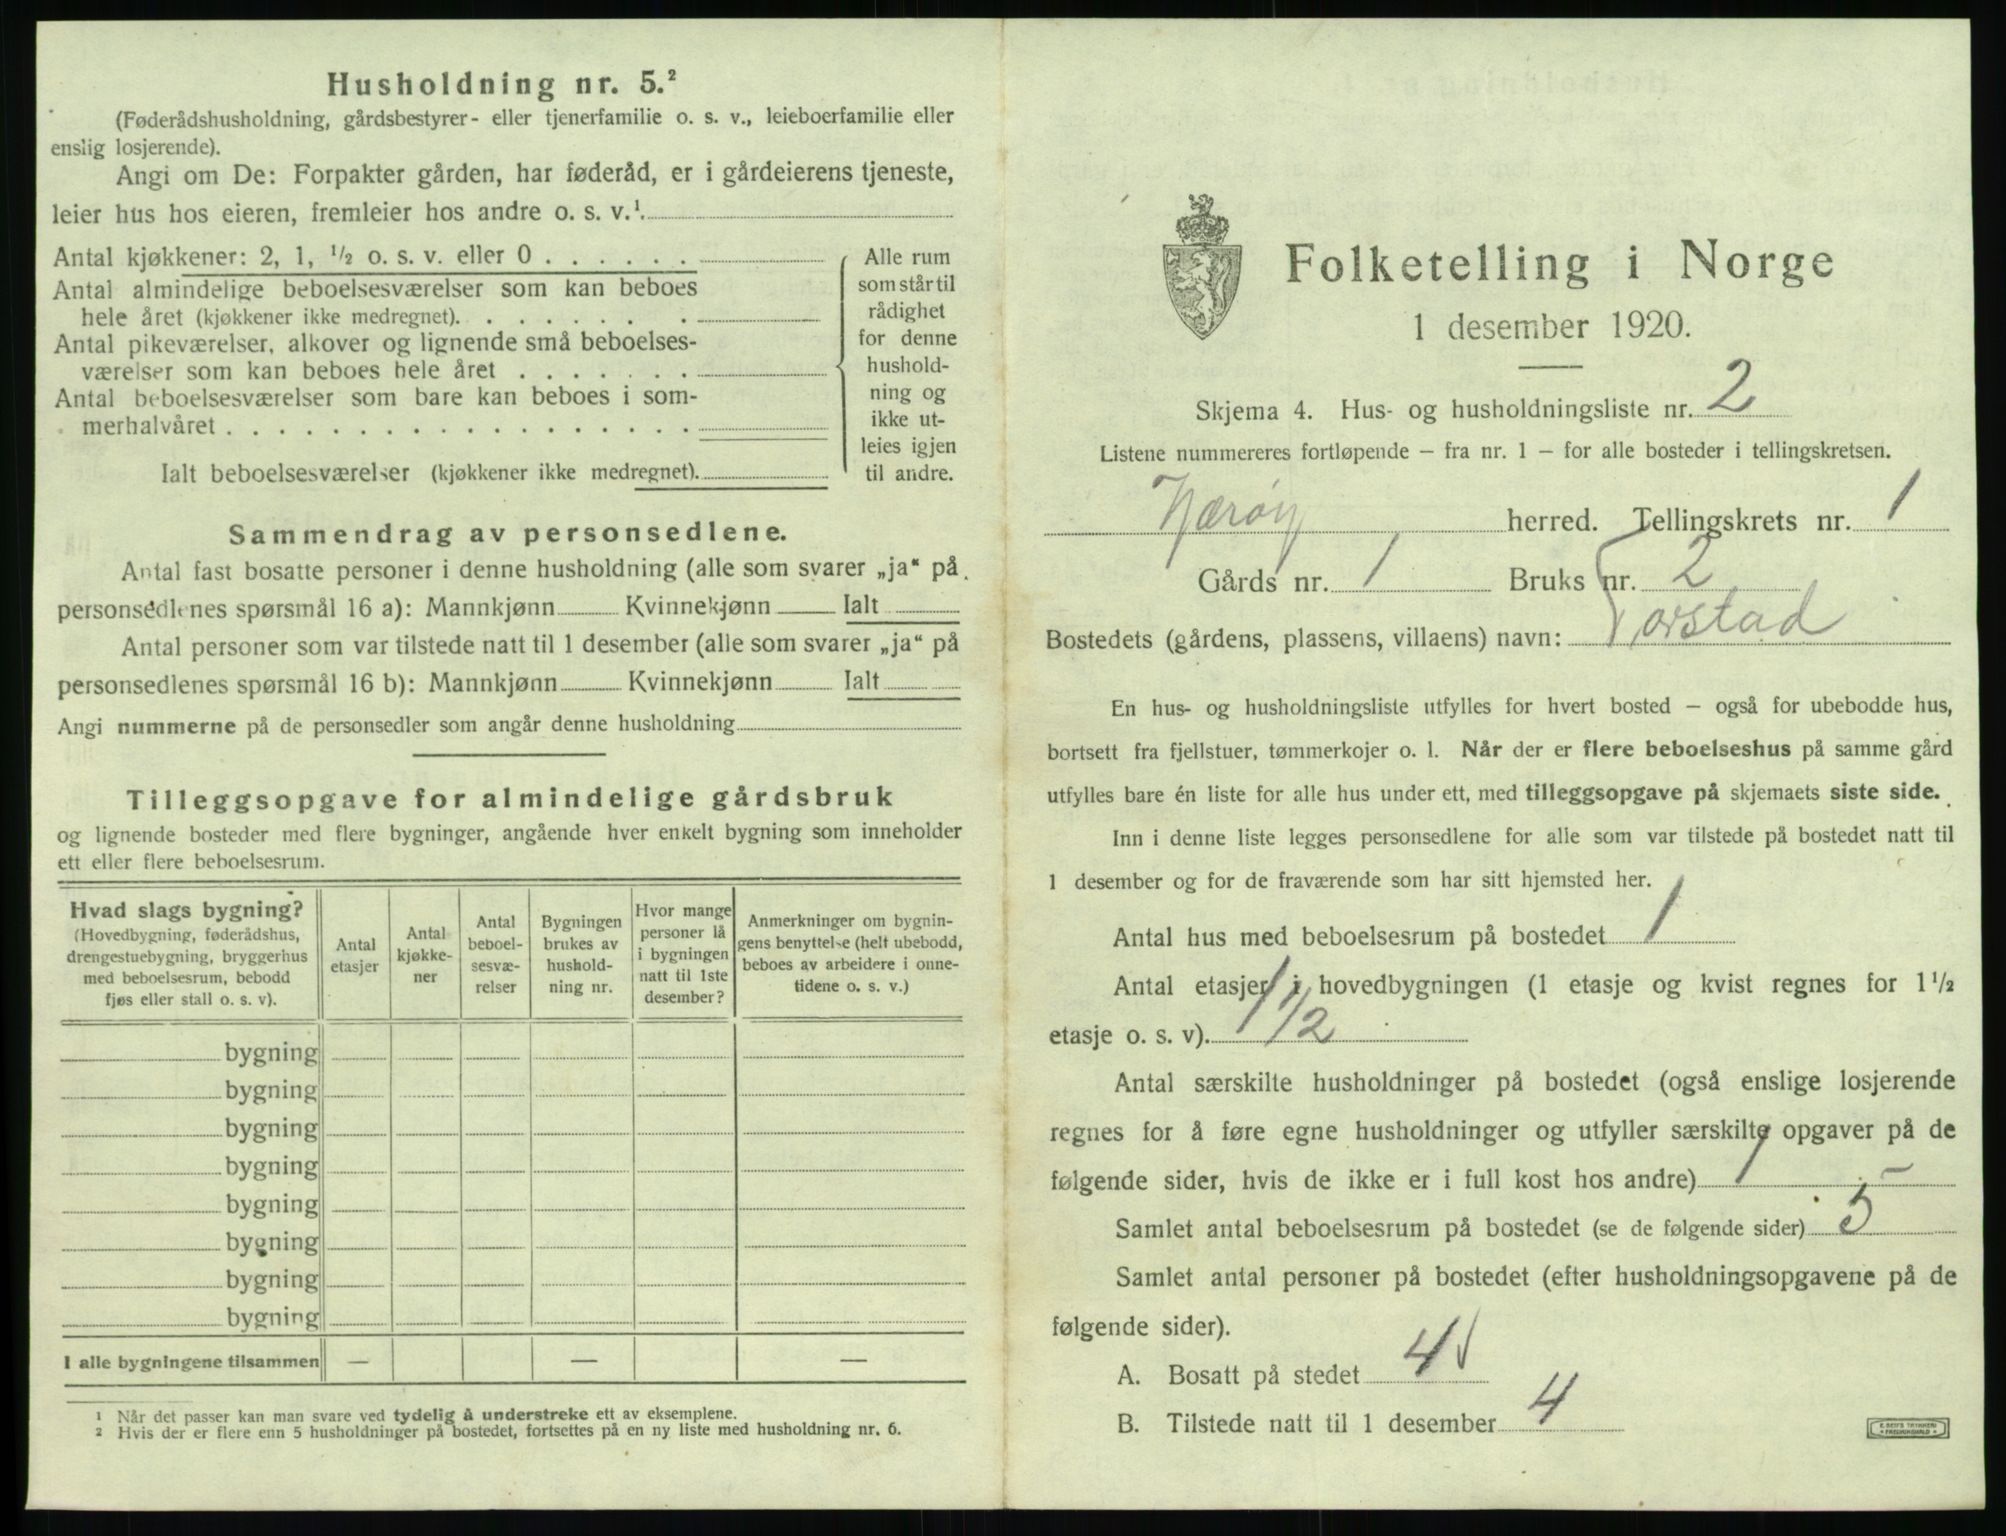 Husholdning nr. 5.²
(Føderådshusholdning, gårdsbestyrer- eller tjenerfamilie o. s. v., leieboerfamilie eller
enslig losjerende).
Angi om De: Forpakter gården, har føderåd, er i gårdeierens tjeneste,
leier hus hos eieren, fremleier hos andre o. s. v.¹.
Antal kjøkkener: 2, 1, ½ o. s. v. eller 0 . . . . . .
Antal almindelige beboelsesværelser som kan beboes
hele året (kjøkkener ikke medregnet). . . . . . . .
Antal pikeværelser, alkover og lignende små beboelses-
værelser som kan beboes hele året . . . . . . .
Antal beboelsesværelser som bare kan beboes i som-
merhalvåret . . . . . . . . . . . . . . . . . .
Ialt beboelsesværelser (kjøkkener ikke medregnet).
Alle rum
som står til
rådighet
for denne
hushold-
ning og
ikke ut-
leies igjen
til andre.
Sammendrag av personsedlene.
Antal fast bosatte personer i denne husholdning (alle som svarer „ja“ på
personsedlenes spørsmål 16 a): Mannkjønn Kvinnekjønn Ialt
Antal personer som var tilstede natt til 1 desember (alle som svarer „ja“ på
personsedlenes spørsmål 16 b): Mannkjønn Kvinnekjønn Ialt
Angi nummerne på de personsedler som angår denne husholdning
Tilleggsopgave for almindelige gårdsbruk
og lignende bosteder med flere bygninger, angående hver enkelt bygning som inneholder
ett eller flere beboelsesrum.
Hvad slags bygning?
(Hovedbygning, føderådshus,
drengestuebygning, bryggerhus
med beboelsesrum, bebodd
fjøs eller stall o. s. v).
Antal
etasjer
Antal
kjøkke-
ner
Antal
beboel-
sesvæ-
relser
Bygningen
brukes av
hushold-
ning nr.
Hvor mange
personer lå
i bygningen
natt til 1ste
desember?
Anmerkninger om bygnin-
gens benyttelse (helt ubebodd,
beboes av arbeidere i onne-
tidene o. s. v.)
bygning
bygning
bygning
bygning
bygning
bygning
bygning
bygning
I alle bygningene tilsammen — — —
¹ Når det passer kan man svare ved tydelig å understreke ett av eksemplene.
² Hvis der er flere enn 5 husholdninger på bostedet, fortsettes på en ny liste med husholdning nr. 6.
Folketelling i Norge
1 desember 1920.
Skjema 4. Hus- og husholdningsliste nr. 2
Listene nummereres fortløpende – fra nr. 1 – for alle bosteder i tellingskretsen.
Nærøy herred. Tellingskrets nr. 1
Gårds nr. 1 Bruks nr. 2
Bostedets (gårdens, plassens, villaens) navn: Torstad
En hus- og husholdningsliste utfylles for hvert bosted – også for ubebodde hus,
bortsett fra fjellstuer, tømmerkojer o. l. Når der er flere beboelseshus på samme gård
utfylles bare én liste for alle hus under ett, med tilleggsopgave på skjemaets siste side.
Inn i denne liste legges personsedlene for alle som var tilstede på bostedet natt til
1 desember og for de fraværende som har sitt hjemsted her.
Antal hus med beboelsesrum på bostedet 1
Antal etasjer i hovedbygningen (1 etasje og kvist regnes for 1½
etasje o. s. v). 1 1/2
Antal særskilte husholdninger på bostedet (også enslige losjerende
regnes for å føre egne husholdninger og utfyller særskilte opgaver på de
følgende sider, hvis de ikke er i full kost hos andre) 1
Samlet antal beboelsesrum på bostedet (se de følgende sider) 5
Samlet antal personer på bostedet (efter husholdningsopgavene på de
følgende sider).
A. Bosatt på stedet 4
B. Tilstede natt til 1 desember 4
E. SEM'S TRYKKERI
FREDRIKSHALD